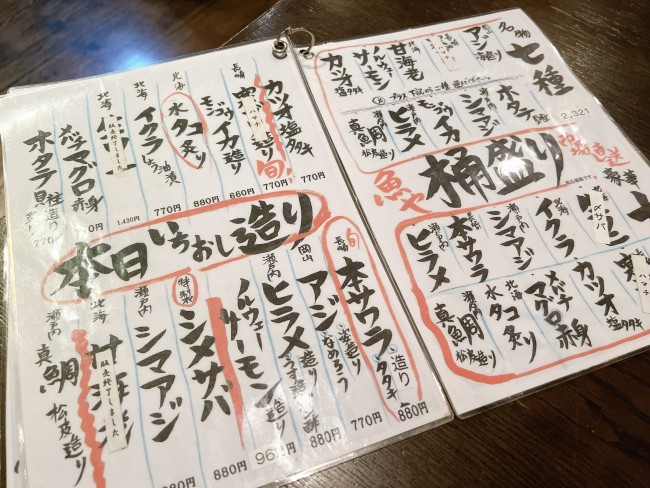 本日いちおし造り
カツオ塩タタキ
旬
770円
長崎
770円
モンゴウイカ造り
660円
水タコ炙り
北海
880円
北海
イクラ
しょう油漬
770円
北海
販売終了しました
1,430円
メバチマグロ赤身
ホタテ貝柱造り
長崎
旬
本サワラ
造り
タタキ
880円
岡山
アジ
造り
なめろう
770円
瀬戸内
ヒラメ
880円
ノルウェー
サーモン
特製
シメサバ
880円
瀬戸内
シマアジ
北海
販売終了しました
瀬戸内
真鯛
松皮造り
名物
七種
アジ
造り
甘海老
ノルウェー
サーモン
カツオ
塩タタキ
ホタテ
シマアジ
モンゴウイカ
ヒラメ
真鯛
松皮造り
2,321
魚や
桶盛り
直送
豪華
北海
イクラ
瀬戸内
シマアジ
長崎
本サワラ
瀬戸内
ヒラメ
カツオ
塩タタキ
メバチ
マグロ
赤身
北海
水タコ
炙り
瀬戸内
真鯛
松皮造り